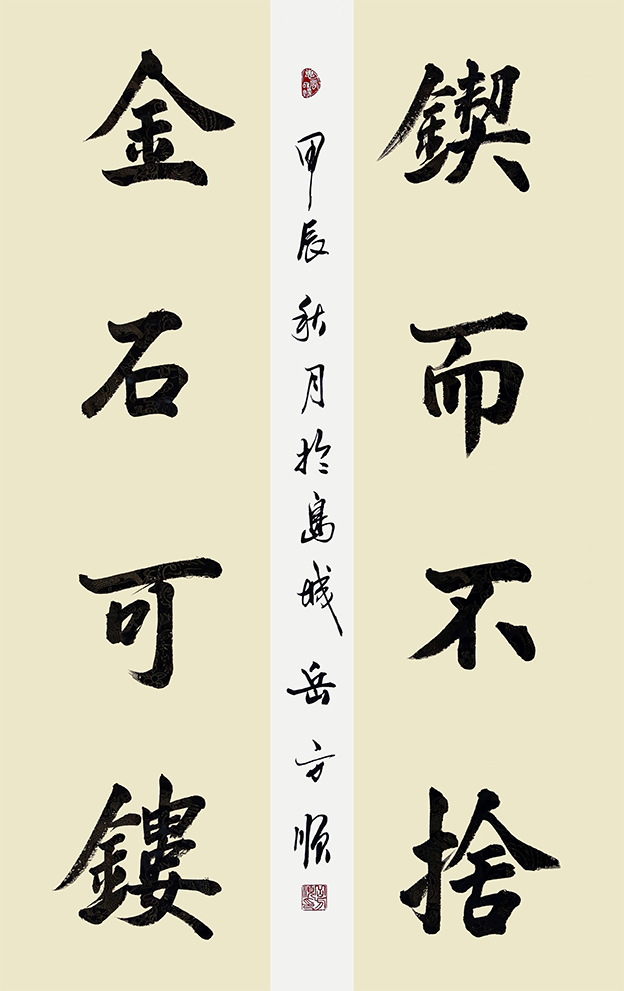 鍥而不捨
金石可鏤
甲辰秋月於島城岳方順